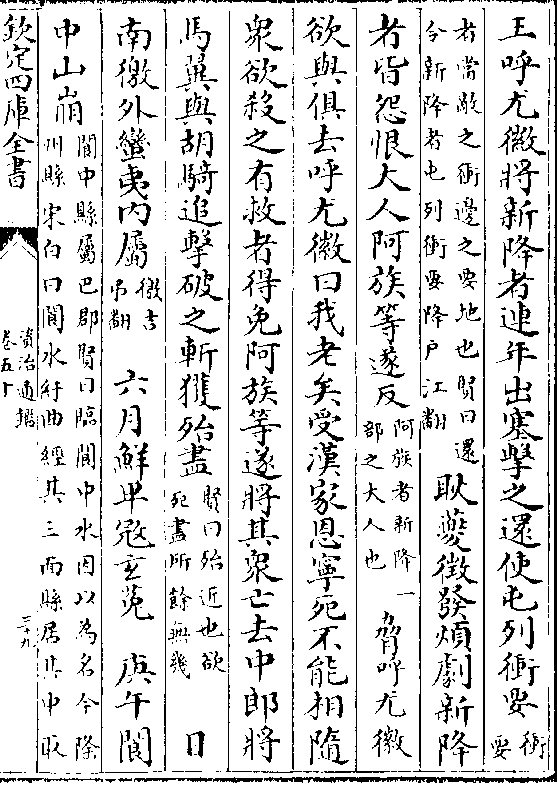 王呼尤徽將新降者連年出塞擊之還使屯列衝要衝要
者當敵之衝邊之要地也賢曰還
令新降者屯列衝要降户江翻
耿夔徵發煩劇新降
者皆怨恨大人阿族等遂反
阿族者新降一
部之大人也
脅呼尤徽
欲與俱去呼尤徽曰我老矣受漢家恩寧死不能相隨
衆欲殺之有救者得免阿族等遂將其衆亡去中郎將
馬翼與胡騎追擊破之斬獲殆盡
賢曰殆近也欲
死盡所餘無幾
日
南徼外蠻夷内屬
徼吉
弔翻
六月鮮卑寇玄菟　庚午閬
中山崩
閬中縣屬巴郡賢曰臨閬中水因以為名今隆
州縣宋白曰閬水紆曲經其三面縣居其中取
欽定四庫全書
資治通鑑
卷五十
三十九